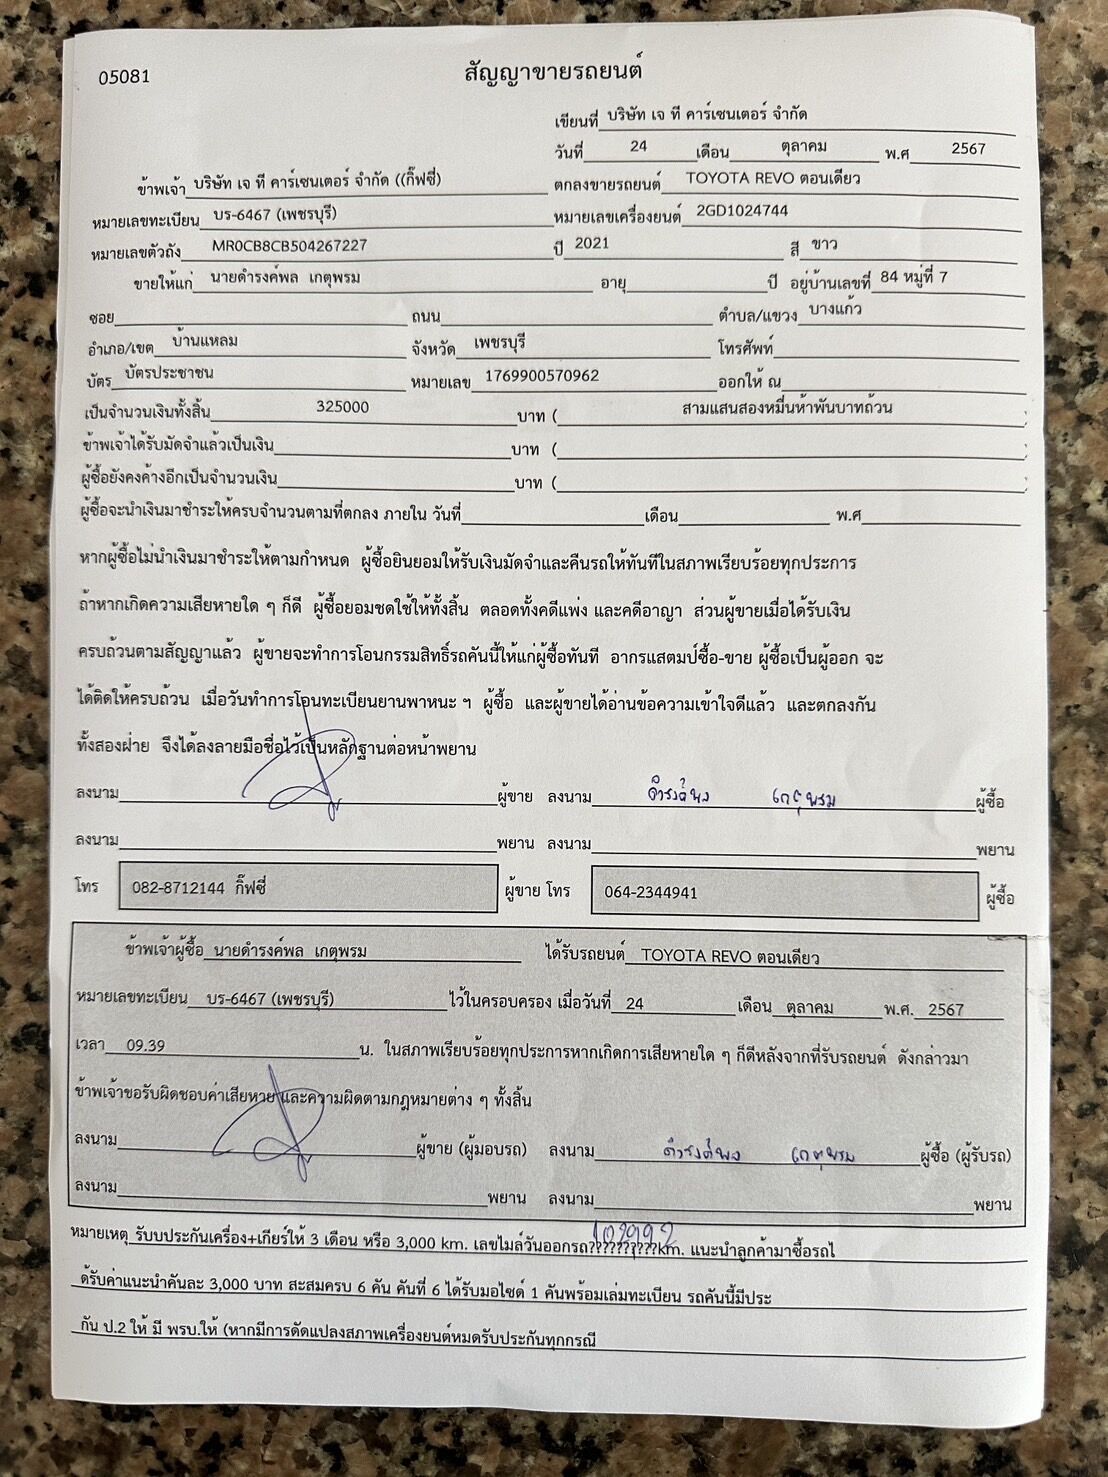 05081
สัญญาขายรถยนต์
เขียนที่ บริษัท เจ ที คาร์เซนเตอร์ จำกัด
วันที่ 24 เดือน ตุลาคม พ.ศ 2567
ข้าพเจ้า บริษัท เจ ที คาร์เซนเตอร์ จำกัด ((กิ๊ฟซี่) ตกลงขายรถยนต์ TOYOTA REVO ตอนเดียว
หมายเลขทะเบียน บร-6467 (เพชรบุรี) หมายเลขเครื่องยนต์ 2GD1024744
หมายเลขตัวถัง MR0CB8CB504267227 ปี 2021 สี ขาว
ขายให้แก่ นายดำรงค์พล เกตุพรม อายุ ปี อยู่บ้านเลขที่ 84 หมู่ที่ 7
ซอย ถนน ตำบล/แขวง บางแก้ว
อำเภอ/เขต บ้านแหลม จังหวัด เพชรบุรี โทรศัพท์
บัตร บัตรประชาชน หมายเลข 1769900570962 ออกให้ ณ
เป็นจำนวนเงินทั้งสิ้น 325000 บาท ( สามแสนสองหมื่นห้าพันบาทถ้วน )
ข้าพเจ้าได้รับมัดจำแล้วเป็นเงิน บาท ( )
ผู้ซื้อยังคงค้างอีกเป็นจำนวนเงิน บาท ( )
ผู้ซื้อจะนำเงินมาชำระให้ครบจำนวนตามที่ตกลง ภายใน วันที่ เดือน พ.ศ
หากผู้ซื้อไม่นำเงินมาชำระให้ตามกำหนด ผู้ซื้อยินยอมให้รับเงินมัดจำและคืนรถให้ทันทีในสภาพเรียบร้อยทุกประการ
ถ้าหากเกิดความเสียหายใด ๆ ก็ดี ผู้ซื้อยอมชดใช้ให้ทั้งสิ้น ตลอดทั้งคดีแพ่ง และคดีอาญา ส่วนผู้ขายเมื่อได้รับเงิน
ครบถ้วนตามสัญญาแล้ว ผู้ขายจะทำการโอนกรรมสิทธิ์รถคันนี้ให้แก่ผู้ซื้อทันที อากรแสตมป์ซื้อ-ขาย ผู้ซื้อเป็นผู้ออก จะ
ได้ติดให้ครบถ้วน เมื่อวันทำการโอนทะเบียนยานพาหนะ ฯ ผู้ซื้อ และผู้ขายได้อ่านข้อความเข้าใจดีแล้ว และตกลงกัน
ทั้งสองฝ่าย จึงได้ลงลายมือชื่อไว้เป็นหลักฐานต่อหน้าพยาน
ลงนาม ผู้ขาย ลงนาม ดำรงค์พล เกตุพรม ผู้ซื้อ
ลงนาม พยาน ลงนาม พยาน
โทร 082-8712144 กิ๊ฟซี่ ผู้ขาย โทร 064-2344941 ผู้ซื้อ
ข้าพเจ้าผู้ซื้อ นายดำรงค์พล เกตุพรม ได้รับรถยนต์ TOYOTA REVO ตอนเดียว
หมายเลขทะเบียน บร-6467 (เพชรบุรี) ไว้ในครอบครอง เมื่อวันที่ 24 เดือน ตุลาคม พ.ศ. 2567
เวลา 09.39 น. ในสภาพเรียบร้อยทุกประการหากเกิดการเสียหายใด ๆ ก็ดีหลังจากที่รับรถยนต์ ดังกล่าวมา
ข้าพเจ้าขอรับผิดชอบค่าเสียหาย และความผิดตามกฎหมายต่าง ๆ ทั้งสิ้น
ลงนาม ผู้ขาย (ผู้มอบรถ) ลงนาม ดำรงค์พล เกตุพรม ผู้ซื้อ (ผู้รับรถ)
ลงนาม พยาน ลงนาม พยาน
102992
หมายเหตุ รับบประกันเครื่อง+เกียร์ให้ 3 เดือน หรือ 3,000 km. เลขไมล์วันออกรถ??????????km. แนะนำลูกค้ามาซื้อรถไ
ด้รับค่าแนะนำคันละ 3,000 บาท สะสมครบ 6 คัน คันที่ 6 ได้รับมอไซด์ 1 คันพร้อมเล่มทะเบียน รถคันนี้มีประ
กัน ป.2 ให้ มี พรบ.ให้ (หากมีการดัดแปลงสภาพเครื่องยนต์หมดรับประกันทุกกรณี